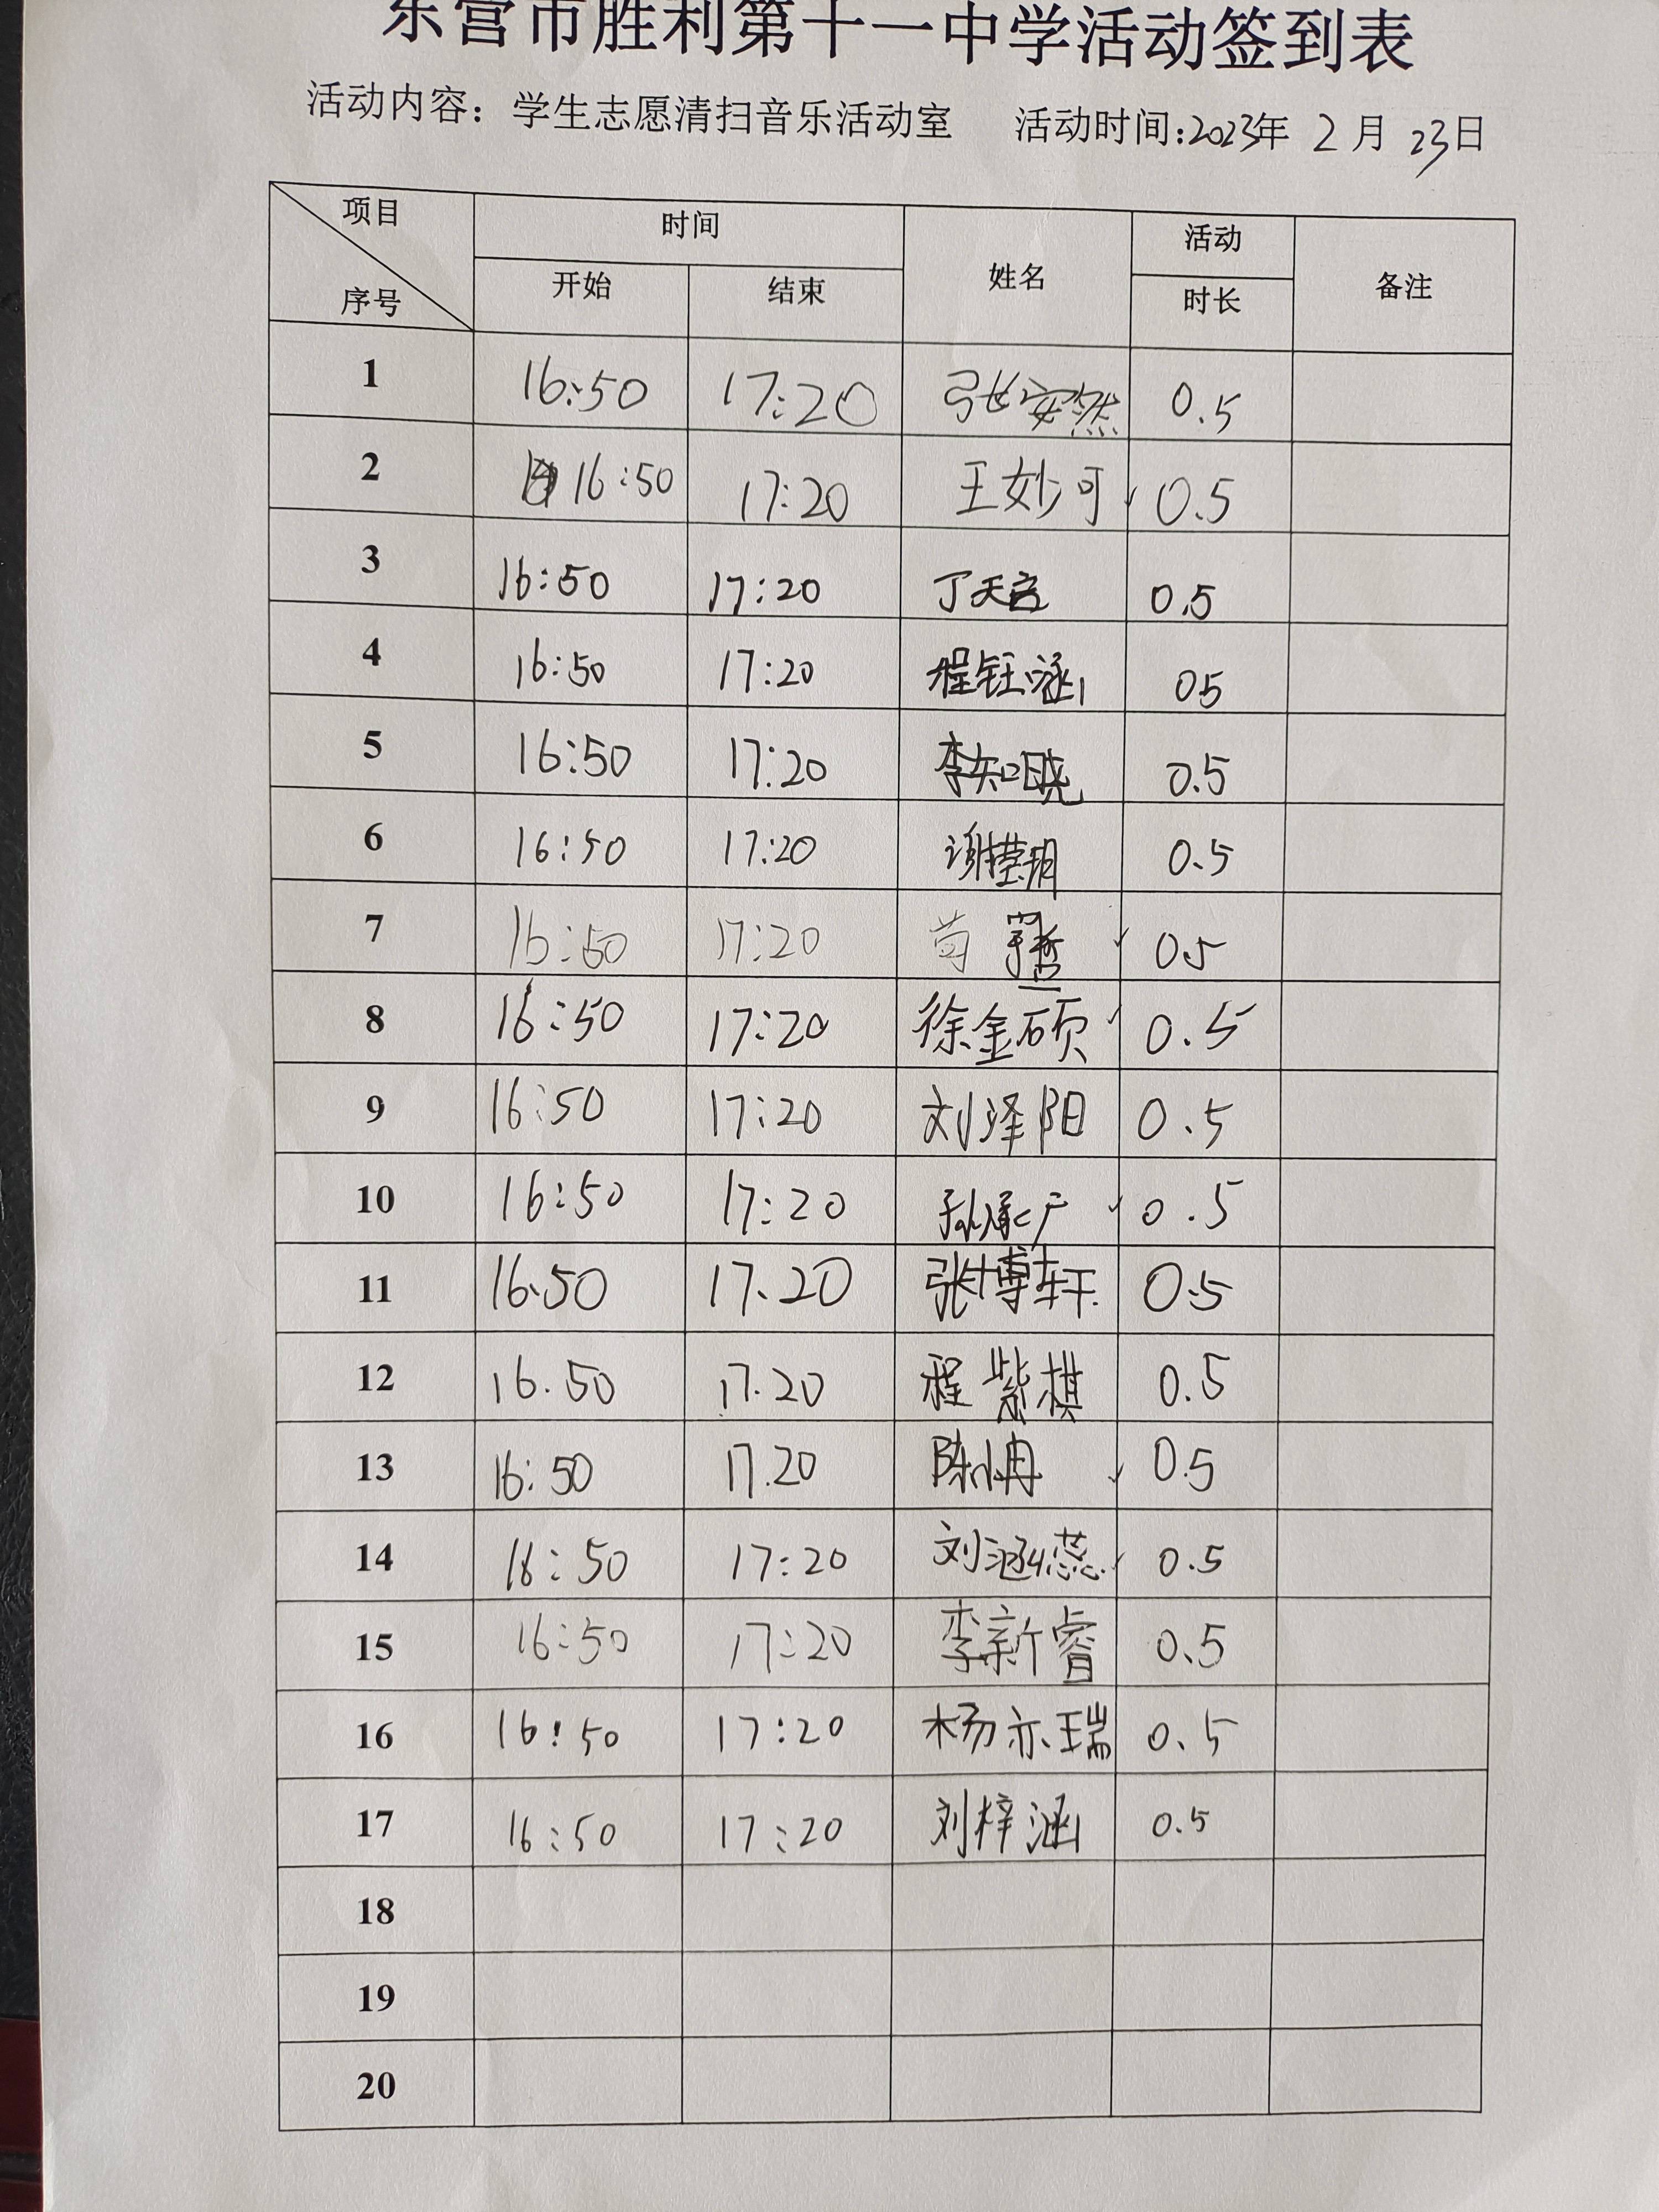 东营市胜利第十一中学活动签到表
活动内容：学生志愿清扫音乐活动室 活动时间:2023年 2 月 23日
项目 时间 姓名 活动 备注
序号 开始 结束 时长
1 16:50 17:20 张安然 0.5
2 16:50 17:20 王妙可 0.5
3 16:50 17:20 丁天言 0.5
4 16:50 17:20 程钰涵 05
5 16:50 17:20 李知晓 0.5
6 16:50 17:20 0.5
7 16:50 17:20 0.5
8 16:50 17:20 徐金硕 0.5
9 16:50 17:20 刘泽阳 0.5
10 16:50 17:20 0.5
11 16.50 17.20 张博轩 0.5
12 16.50 17.20 程紫棋 0.5
13 16:50 17.20 0.5
14 16:50 17:20 刘涵蕊 0.5
15 16:50 17:20 李新睿 0.5
16 16:50 17:20 杨亦瑞 0.5
17 16:50 17:20 刘梓涵 0.5
18
19
20